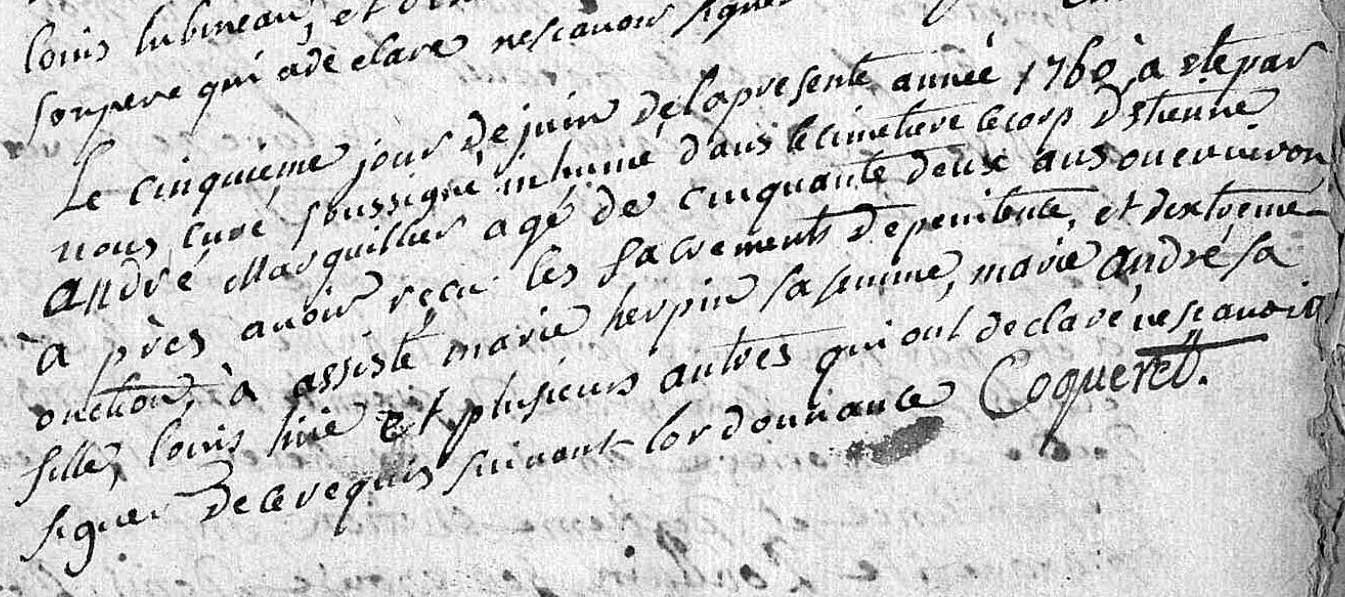 louis lubineau, et
son pere qui a declare ne scavoir signer
Le cinquieme jour de juin de la presente année 1760, à eté par
nous curé soussigné inhumé dans le cimetiere le corp d'Etienne
andré Marguillier agé de cinquante deux ans ou environ
à près avoir reçu les sacrements de penitence, et d'extreme-
onction, à assisté marie herpin sa femme, marie andré sa
fille, louis hüe et plusieurs autres qui ont declaré ne scavoir
signer de ce requis suivant lordonnance Coqueret.